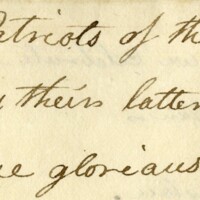 Patriots of th
theirs latter
e glorious